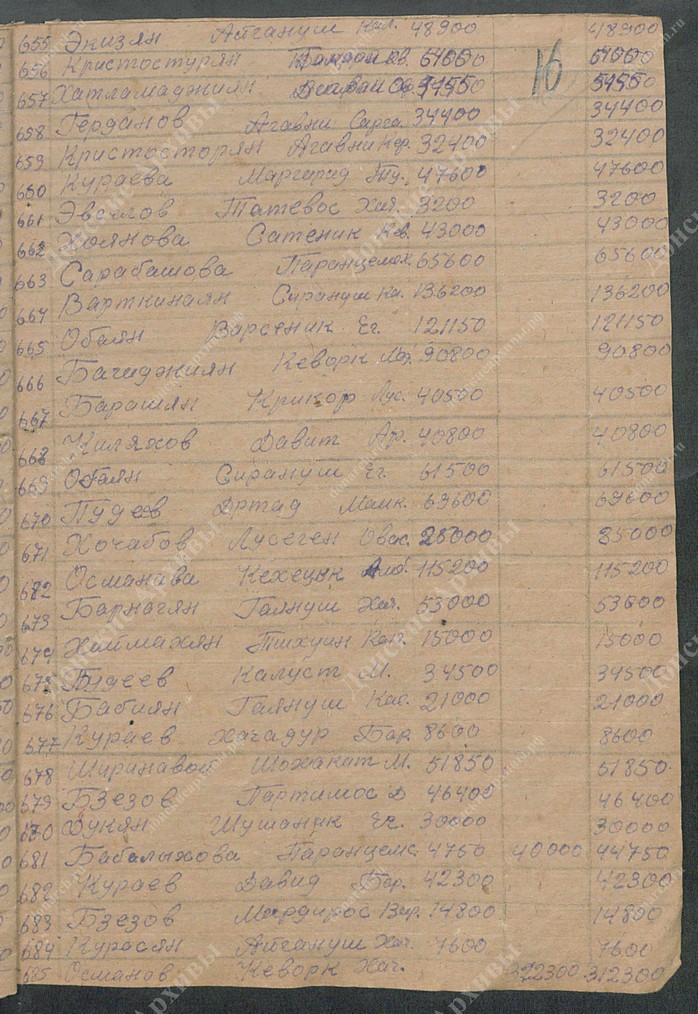 16
655 Экизян Айгануш Кал. 48900 48900
656 Кристостурян 61000 61000
657 Хатламаджиян 54550 54550
658 Герданов Агавни Сарк. 34400 34400
659 Кристосторян Агавни 32400 32400
660 Кураева Маргарид 47600 47600
661 Татевос Хач. 3200 3200
662 Хоянова Сатеник 43000 43000
663 Сарабашова Паранцем 65600 65600
664 Варткинаян Сирануш Ка. 136200 136200
665 Обаян Варсеник Ег. 121150 121150
666 Багиджиян Кеворк 90800 90800
667 Барашян Крикор Лус. 40500 40500
668 Киляхов Давит 40800 40800
669 Обаян Сирануш Ег. 61500 61500
670 Пудеев Дртад Мамк. 69600 69600
671 Хочабов Лусеген Овас. 85000
682 Османава Кехецик 115200 115200
673 Барнагян Гаянуш Хач. 53000 53000
674 Хаймахян 15000 15000
675 Будеев Калуст М. 34500 34500
676 Бабиян Гаянуш Кас. 21000 21000
677 Кураев Хачадур Бар. 8600 8600
678 Шохакат М. 51850 51850
679 Бзезов Партимос Д 46400 46400
680 Дукян Шушаник Ег. 30000 30000
681 Бабалыхова Паранцем 4750 40000 44750
682 Кураев Давид Бар. 42300 42300
683 Бзезов Мардирос Вар. 14800 14800
684 Курасян Айгануш Хач. 7600 7600
685 Османов Кеворк Хач. 312300 312300